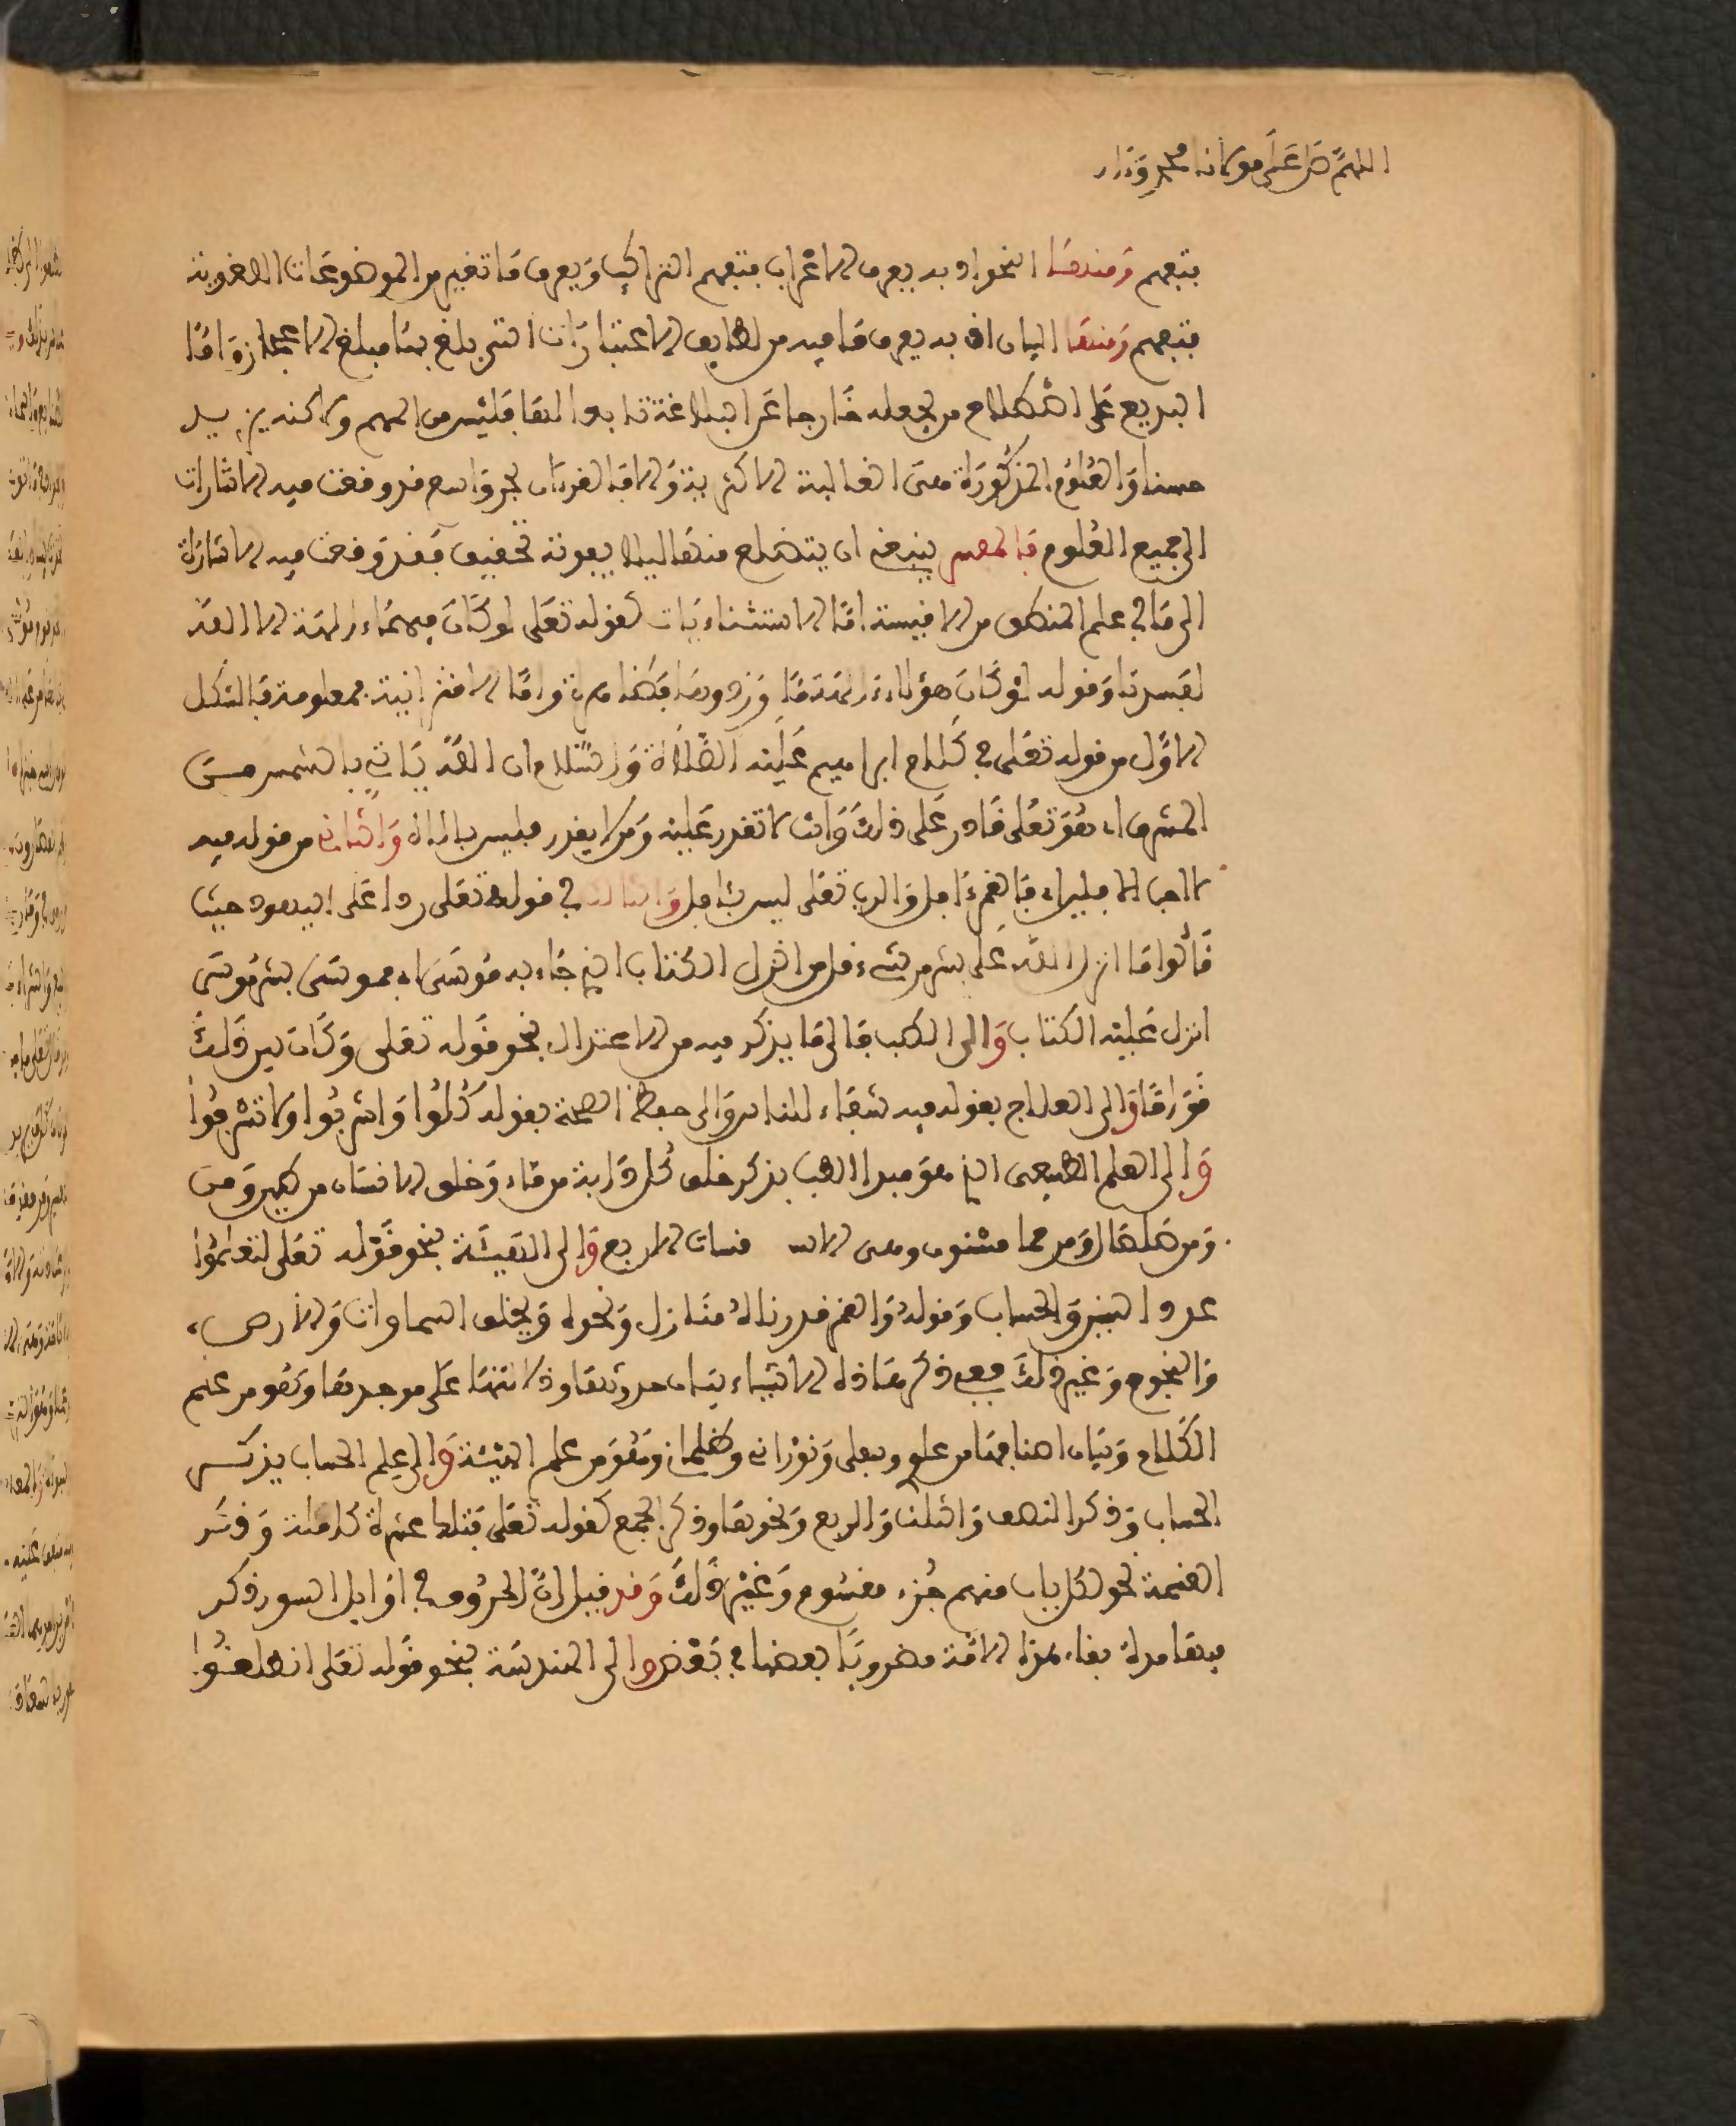 اللهم صل على مولانا محمد وءال
فتفهم ومنها النحو اذ به يعرف الاعراب فتفهم التراكيب ويعرف ما تغير من الموضوعات اللغوية
فتفهم ومنها البيان اذ به يعرف ما فيه من لطايف الاعتبارات التي بلغ بها مبلغ الاعجاز واما
البديع على اصطلاح من يجعله خارجا عن البلاغة تابعا لها فليس من المهم ولاكنه يزيد
حسنا والعلوم المذكورة هي الغالبة الاكثرية والا فالقرءان بحر واسع قد وقعت فيه الاشارات
الى جميع العلوم فالمفسر ينبغي ان يتضلع منها ليلا يفوته تحقيق فقد وقعت فيه الاشارة
الى ما في علم المنطق من الاقيسة اما الاستثناءيات كقوله تعلى لو كان فيهما ءالهة الا الله
لفسدتا وقوله لو كان هؤلاء ءالهة ما وردوها فكلها مرة واما الاقترانية فمعلومة فالشكل
الاول من قوله تعلى في كلام ابراهيم عليه الصلاة والسلام ان الله ياتي بالشمس من
المشرق اي هو تعلى قادر على ذلك وانت لا تقدر عليه ومن لا يقدر فليس بالاه والثاني من قوله فيه
لا احب الافلين اي فالقمر ءافل والرب تعلى ليس بئافل والثالث في قوله تعلى ردا على اليهود حيث
قالوا ما انزل الله على بشر من شيء قل من انزل الكتاب الذي جاء به موسى اي فموسى بشر موسى
انزل عليه الكتاب والى الطب فالى ما يذكر فيه من الاعتدال نحو قوله تعلى وكان بين ذلك
قواما والى العلاج بقوله فيه شفاء للناس والى حفظ الصحة بقوله كلوا واشربوا ولا تسرفوا
والى العلم الطبيعي الذي هو مبدا الطب بذكر خلق كل دابة من ماء وخلق الانسان من طين ومن
ومن صلصال ومن حما مسنون وهي الاسـ ـقسات الاربع والى الهيئة نحو قوله تعلى لتعلموا
عدد السنين والحساب وقوله والقمر قدرناه منازل ونحوه وبخلق السماوات والارض
والنجوم وغير ذلك ففي ذكر هاذه الاشياء بيان حدوثها ودلالتها على موجدها وهو من علم
الكلام وبيان اصنافها من علو وسفلي ونوراني وظلماني وهو من علم الهيئة والى علم الحساب بذكر
الحساب وذكر النصف والثلث والربع ونحوها وذكر الجمع كقوله تعلى فتلك عشرة كاملة وذكر
القسمة نحو لكل باب منهم جزء مقسوم وغير ذلك وقد قيل ان الحروف في اوايل السور ذكر
فيها مدة بقاء هذه الامة مضروبا بعضها في بعض والى الهندسة نحو قوله تعلى انطلقوا